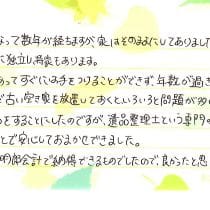 なって数年が経ちますが、家はそのままにしてありました
に独立し、持家もあります。
あってすぐには手をつけることができず、年数が過ぎ
ど古い空き家を放置しておくといろいろと問題が
をすることにしたのですが、遺品整理士という専門の
とで安心しておまかせできました。
明朗会計で納得できるものでしたので、良かったと思